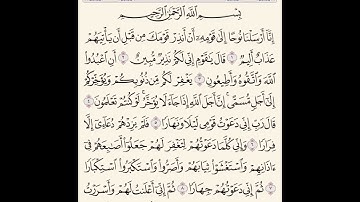 بِسْمِ ٱللَّهِ ٱلرَّحْمَٰنِ ٱلرَّحِيمِ
إِنَّآ أَرْسَلْنَا نُوحًا إِلَىٰ قَوْمِهِۦٓ أَنْ أَنذِرْ قَوْمَكَ مِن قَبْلِ أَن يَأْتِيَهُمْ
عَذَابٌ أَلِيمٌ ١ قَالَ يَٰقَوْمِ إِنِّى لَكُمْ نَذِيرٌ مُّبِينٌ ٢ أَنِ ٱعْبُدُوا۟
ٱللَّهَ وَٱتَّقُوهُ وَأَطِيعُونِ ٣ يَغْفِرْ لَكُم مِّن ذُنُوبِكُمْ وَيُؤَخِّرْكُمْ
إِلَىٰٓ أَجَلٍ مُّسَمًّى إِنَّ أَجَلَ ٱللَّهِ إِذَا جَآءَ لَا يُؤَخَّرُ لَوْ كُنتُمْ تَعْلَمُونَ ٤
قَالَ رَبِّ إِنِّى دَعَوْتُ قَوْمِى لَيْلًا وَنَهَارًا ٥ فَلَمْ يَزِدْهُمْ دُعَآءِىٓ إِلَّا
فِرَارًا ٦ وَإِنِّى كُلَّمَا دَعَوْتُهُمْ لِتَغْفِرَ لَهُمْ جَعَلُوٓا۟ أَصَٰبِعَهُمْ فِىٓ
ءَاذَانِهِمْ وَٱسْتَغْشَوْا۟ ثِيَابَهُمْ وَأَصَرُّوا۟ وَٱسْتَكْبَرُوا۟ ٱسْتِكْبَارًا
٧ ثُمَّ إِنِّى دَعَوْتُهُمْ جِهَارًا ٨ ثُمَّ إِنِّىٓ أَعْلَنتُ لَهُمْ وَأَسْرَرْتُ